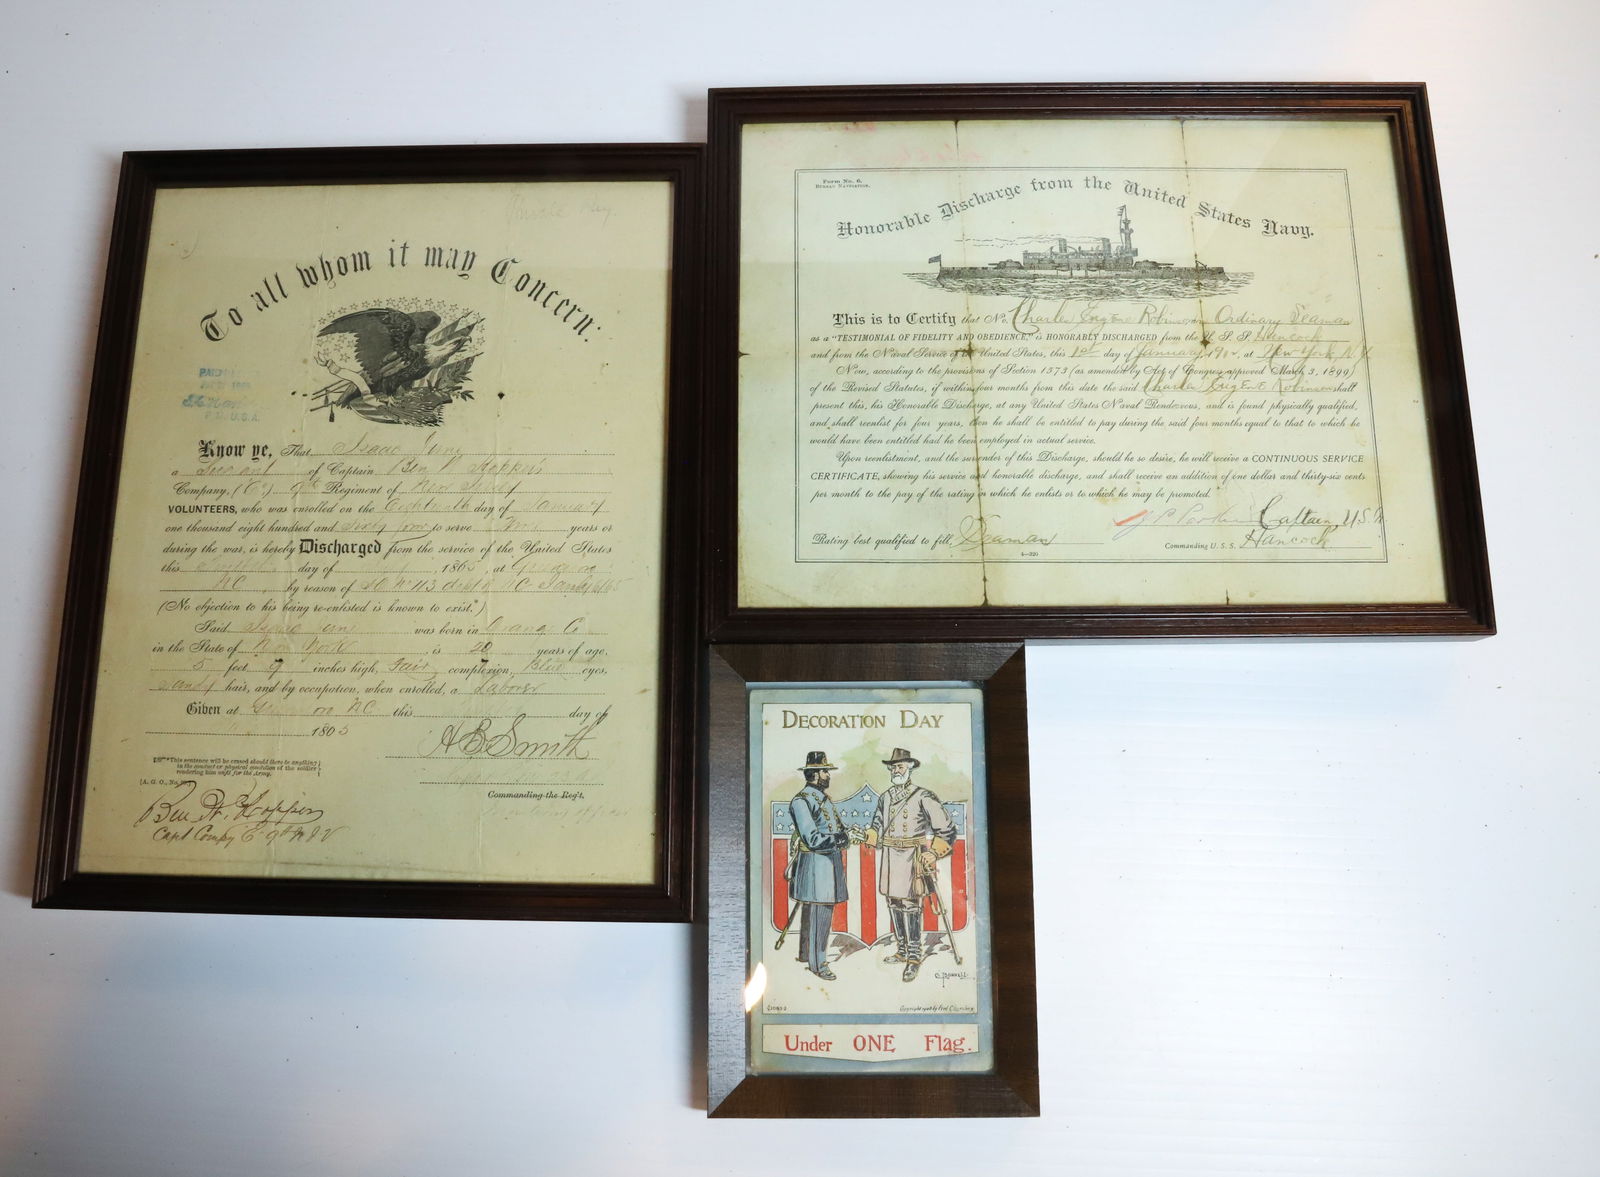 To all whom it may Concern:
PAID
U.S.A.
Know ye, That Isaac
a of Captain Ben W Hopper's
Company, (E.) 9th Regiment of New Jersey
VOLUNTEERS, who was enrolled on the Eighteenth day of January
one thousand eight hundred and Sixty four to serve years or
during the war, is hereby Discharged from the service of the United States
this day of , 1865, at
NC , by reason of S.O. No 113 dept N.C.
(No objection to his being re-enlisted is known to exist.*)
Said Isaac was born in Orange C
in the State of New York is 20 years of age,
5 feet 9 inches high, Fair complexion, Blue eyes,
Sandy hair, and by occupation, when enrolled, a Laborer
Given at N.C. this day of
1865
A B Smith
*This sentence will be erased should there be anything
in the conduct or physical condition of the soldier
rendering him unfit for the Army.
[A. G. O., No.
Commanding the Reg't.
Ben W. Hopper
Capt Compy E 9th N J V
Form No. 6.
Bureau Navigation.
Honorable Discharge from the United States Navy.
This is to Certify that No. Charles Eugene Robinson Ordinary Seaman
as a "TESTIMONIAL OF FIDELITY AND OBEDIENCE," is HONORABLY DISCHARGED from the U. S. S. Hancock
and from the Naval Service of the United States, this 1st day of January, 190 , at New York, N.Y.
Now, according to the provisions of Section 1573 (as amended by Act of Congress approved March 3, 1899)
of the Revised Statutes, if within four months from this date the said Charles Eugene Robinson shall
present this, his Honorable Discharge, at any United States Naval Rendezvous, and is found physically qualified,
and shall reenlist for four years, then he shall be entitled to pay during the said four months equal to that to which he
would have been entitled had he been employed in actual service.
Upon reenlistment, and the surrender of this Discharge, should he so desire, he will receive a CONTINUOUS SERVICE
CERTIFICATE, showing his service and honorable discharge, and shall receive an addition of one dollar and thirty-six cents
per month to the pay of the rating in which he enlists or to which he may be promoted.
Captain, U.S.N.
Rating best qualified to fill, Seaman
Commanding U. S. S. Hancock
4—320
DECORATION DAY
Under ONE Flag.